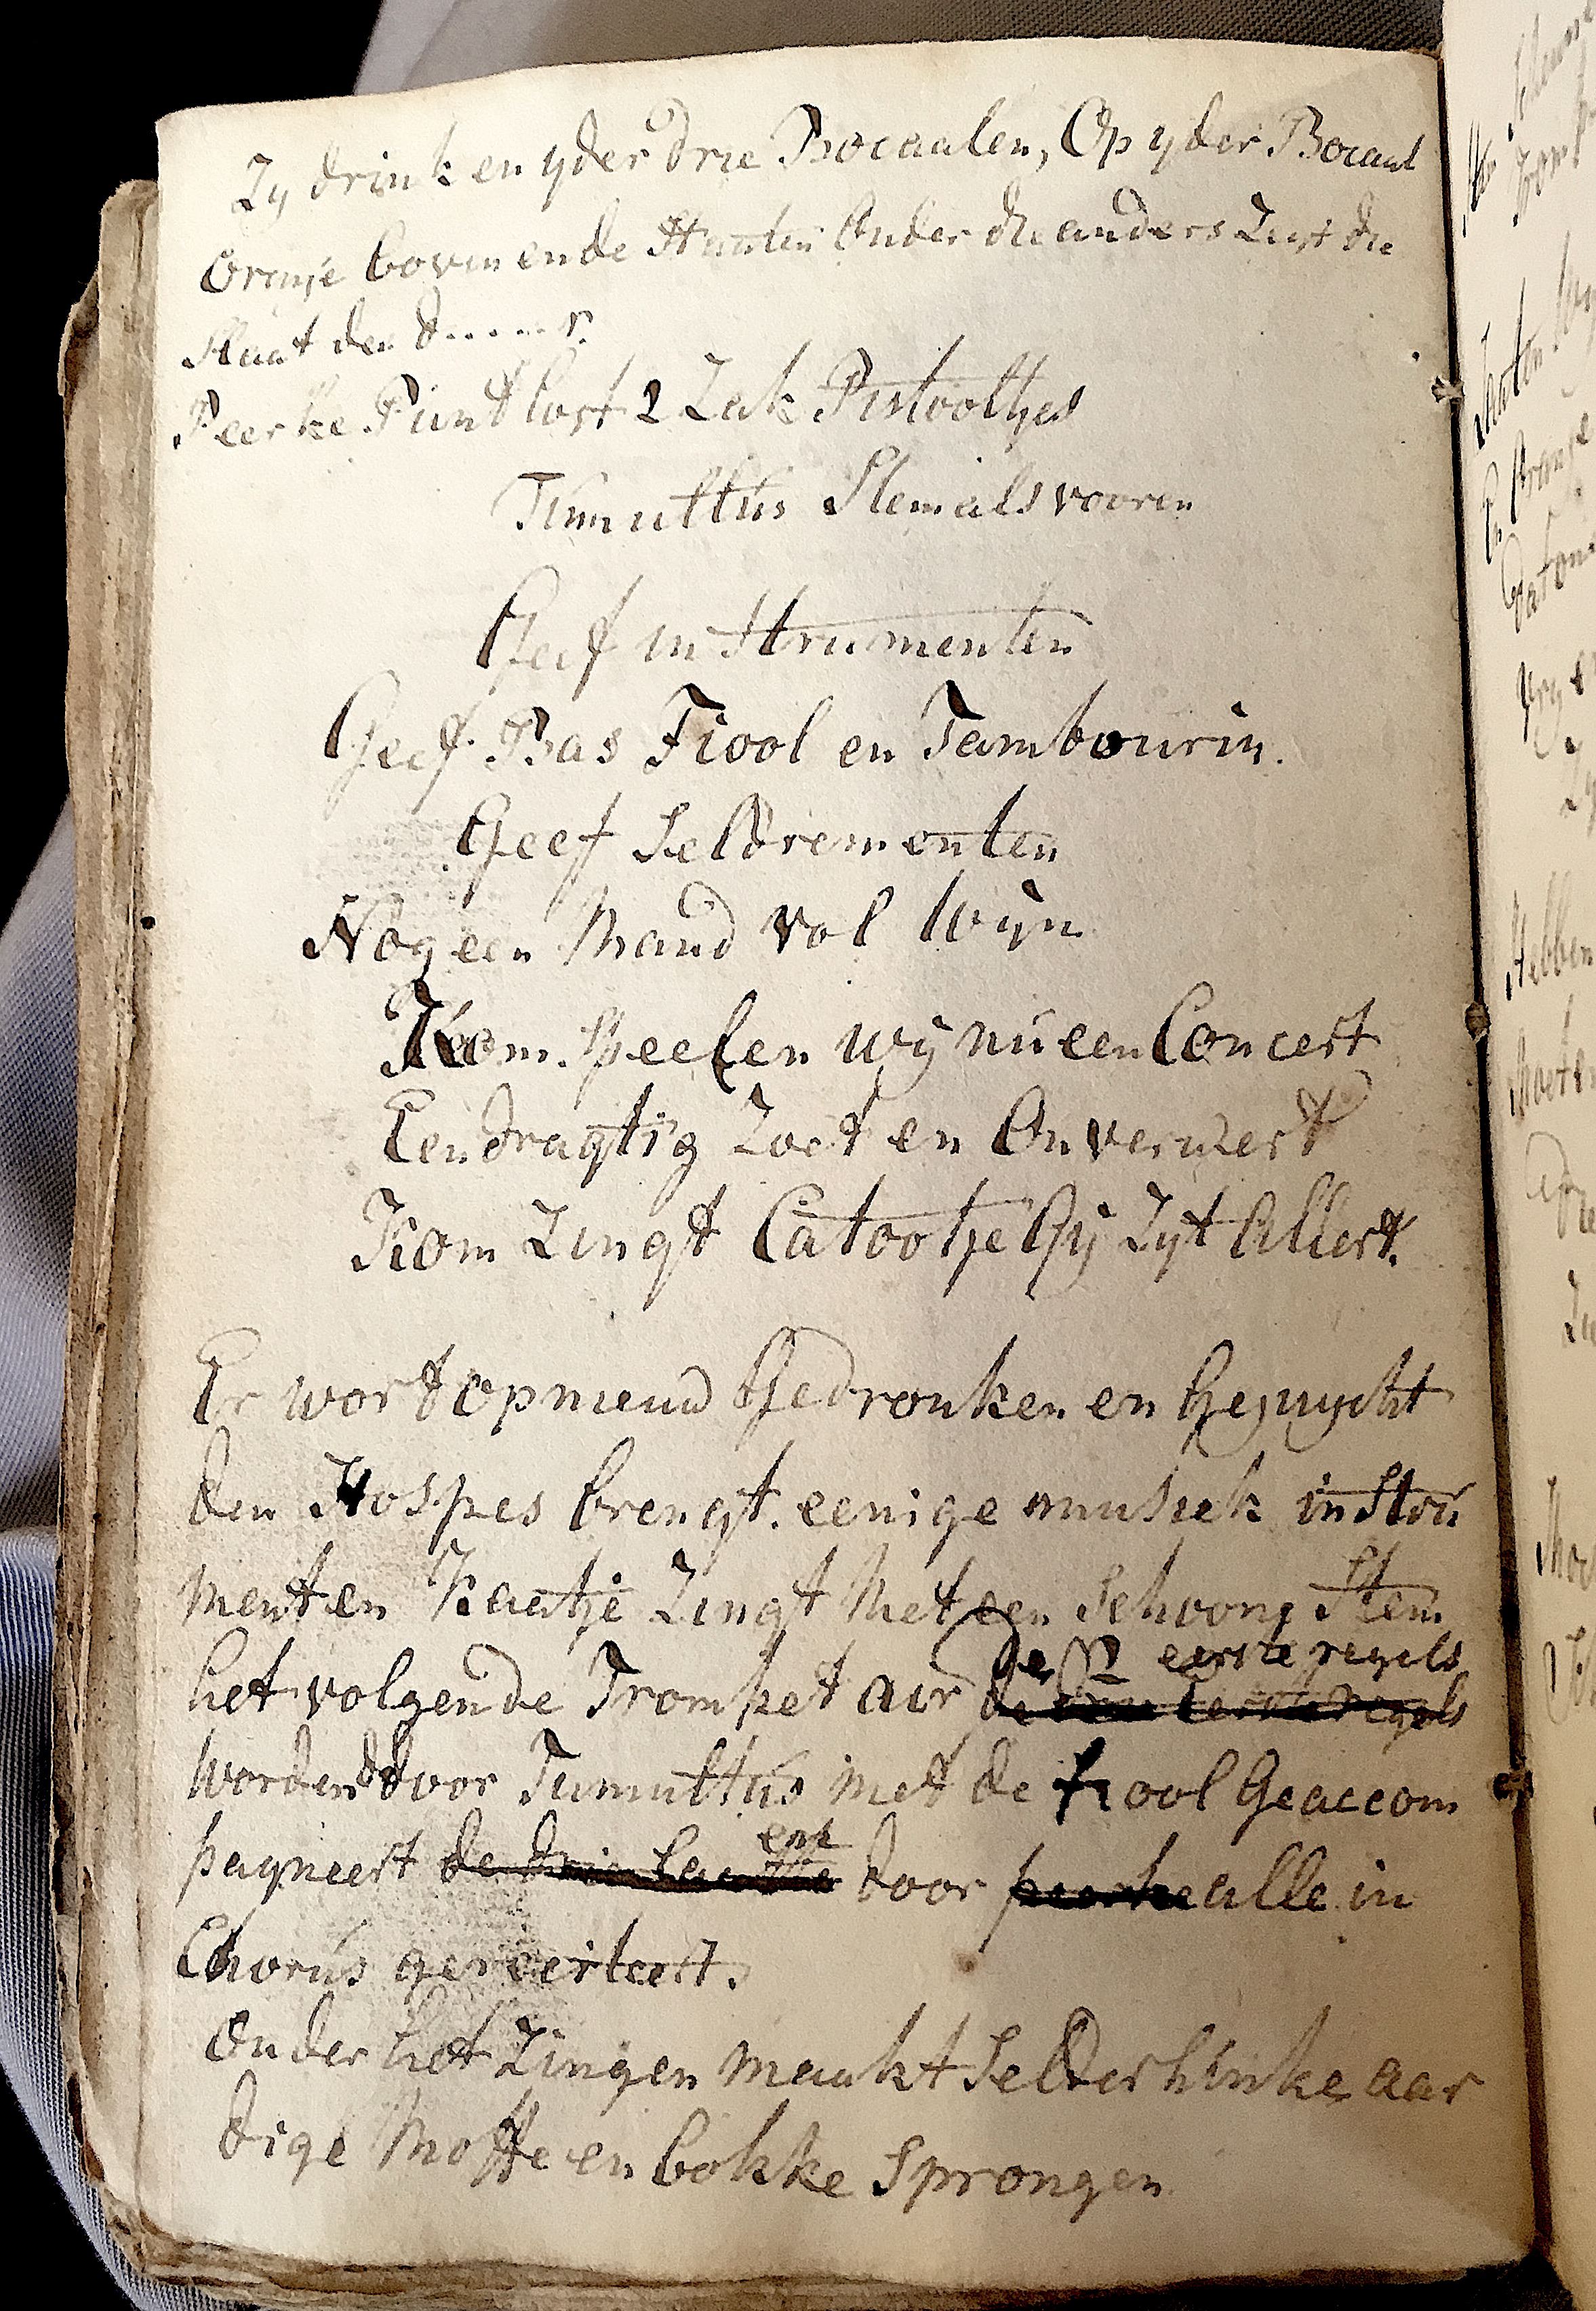 Zy drinken yder drie Bocaalen, Op yder Bocaal
Oranje boven en de Staaten Onder die anders Zegt die
Slaat den d......r.
Peerke Punt lost 2 Zak Pistooltjes
Tumultus Stem als vooren
Geef instrumenten
Geef Bas Fiool en Tambourin.
Geef Seldrementen
Nog een Mand vol Wijn
Kom speelen wij nu een Concert
Eendragtig Zoet en Onverwert
Kom Zingt Catootje Gij Zyt Allert.
Er wort op nieuw Gedronken en Gejuycht
den Hospes brengt eenige musiek instru
menten Kaatje Zingt Met een Schoone Stem
het volgende Trompet air De eerste regels
Worden door Tumultus met de fiool Geaccom
pagneert en door alle in
Chorus gereciteert.
Onder het Zingen maakt Selderhinke aar
dige Moffe en bokke Sprongen